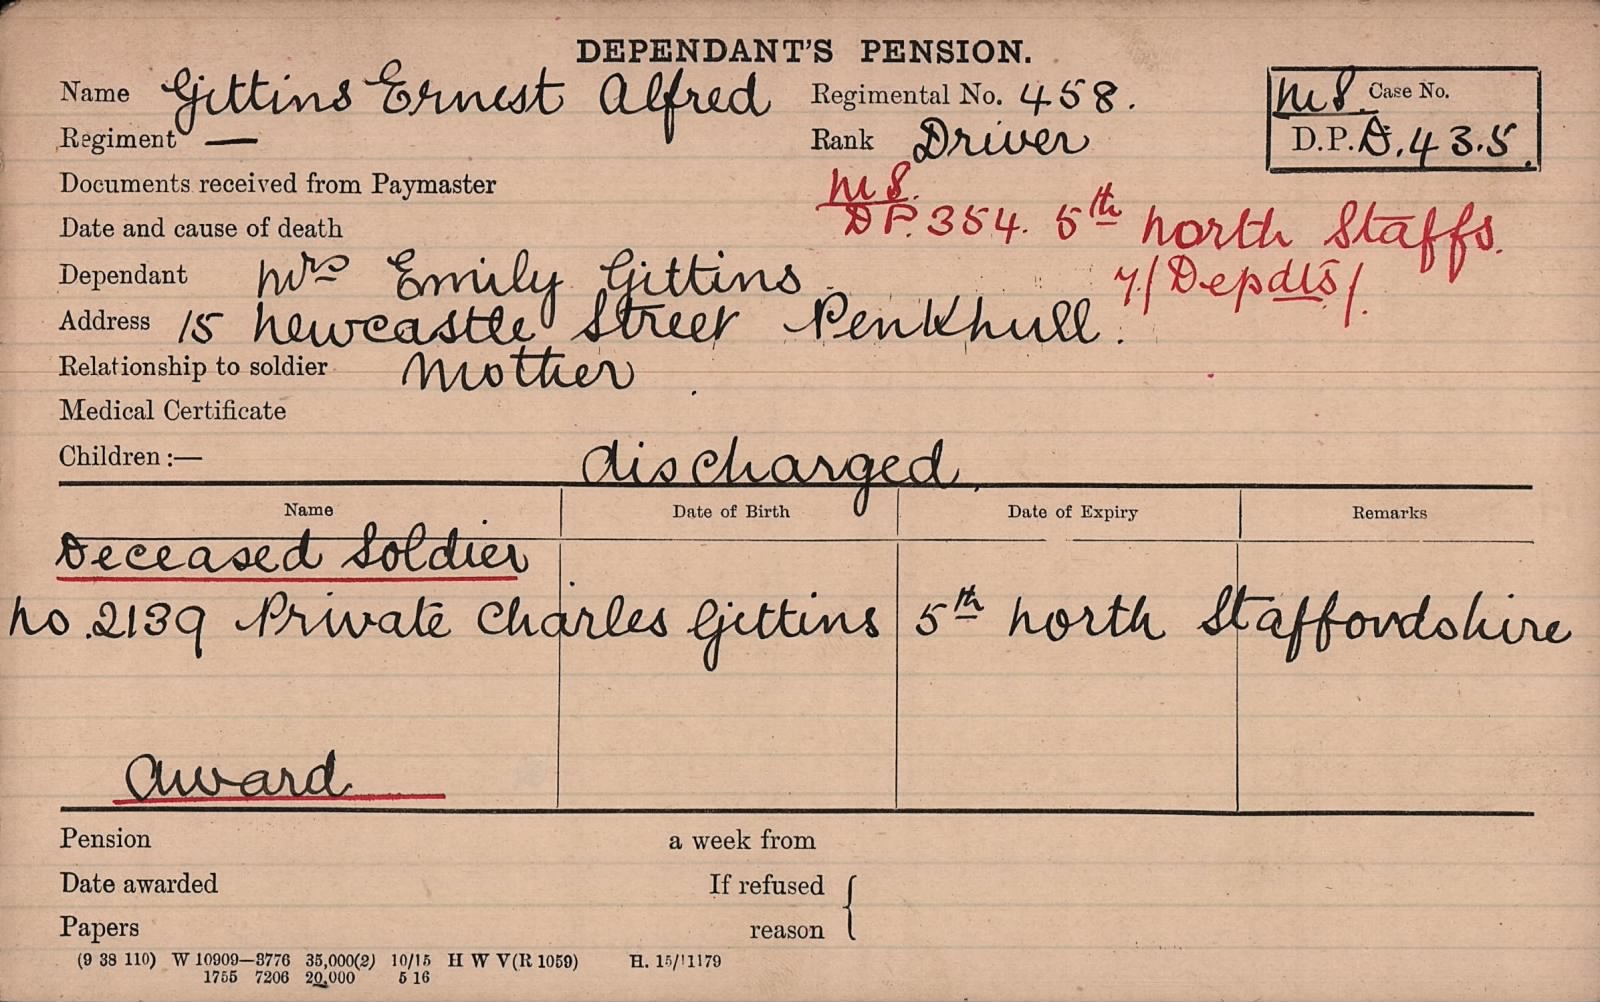 DEPENDANT'S PENSION.
Name Gittins Ernest Alfred Regimental No. 458. M S. Case No.
Regiment — Rank Driver D.P. D.435.
Documents received from Paymaster M S.
DP. 354. 5th North Staffs.
Date and cause of death
Dependant Mrs Emily Gittins /Depdts/.
Address 15 Newcastle Street Penkhull.
Relationship to soldier Mother
Medical Certificate
Children :— discharged.
Name Date of Birth Date of Expiry Remarks
Deceased Soldier
No. 2139 Private Charles Gittins 5th North Staffordshire
Award
Pension a week from
Date awarded If refused
Papers reason
(9 38 110) W 10909—3776 35,000(2) 10/15 H W V(R 1059) H. 15/1179
1755 7206 20,000 5 16